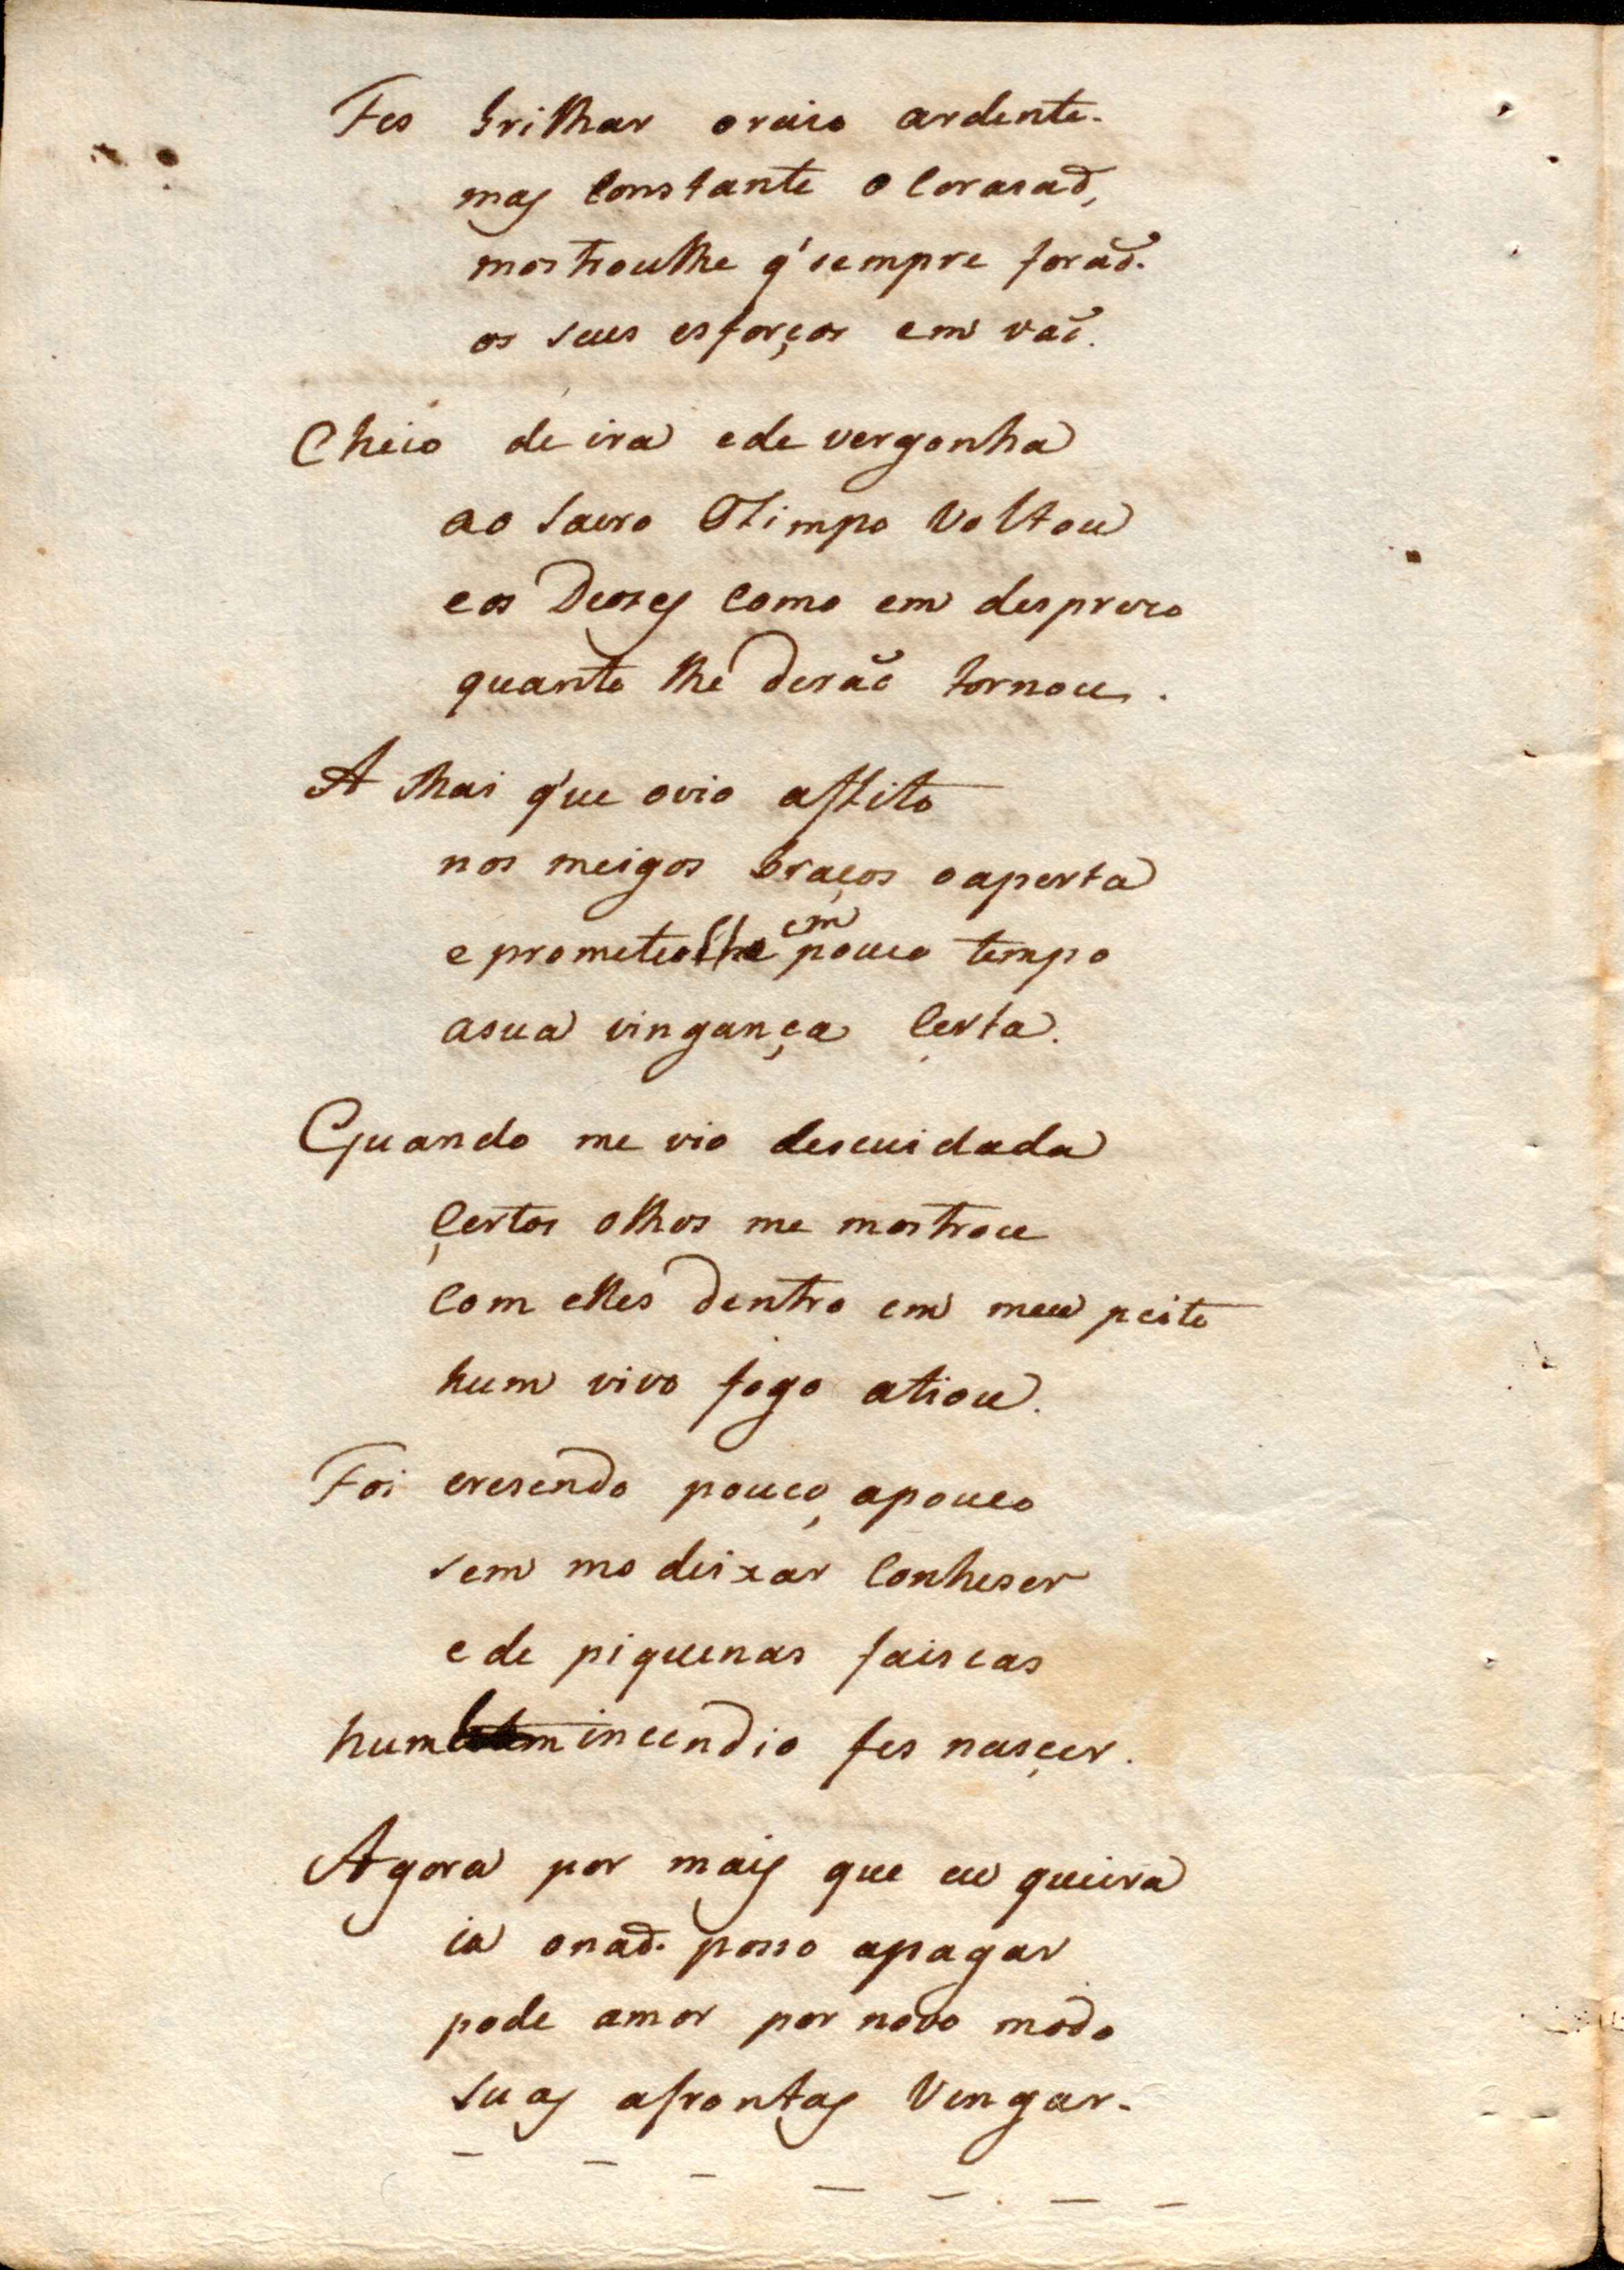 Fes brilhar oraio ardente.
mas Constante o Corasaõ,
mostroulhe q' sempre foraõ.
os seus esforços em vaõ.
Cheio de ira ede vergonha
ao sacro Olimpo Voltou
eos Deoses Como em desprezo
quanto lhe deraõ tornou.
A Mai q'ue ovio aflito
nos meigos braços oaperta
e prometeolhe em pouco tempo
asua vingança Certa.
Quando me vio descuidada
Çertos olhos me mostrou
Com elles dentro em meu peito
hum vivo fogo atiou.
Foi cresendo pouco, apouco
sem mo deixar Conheser
e de piquenas faiscas
hum incendio fes nasçer.
Agora por mais que eu queira
ia onaõ. posso apagar
pode amor por novo modo
suas afrontas Vengar.